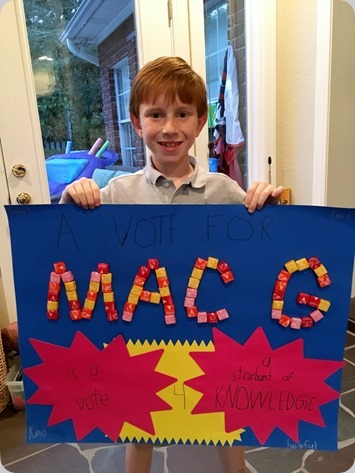 A VOTE FOR
MAC G
is a
vote
4
a
starburst of
KNOWLEDGE
Kind
helpful